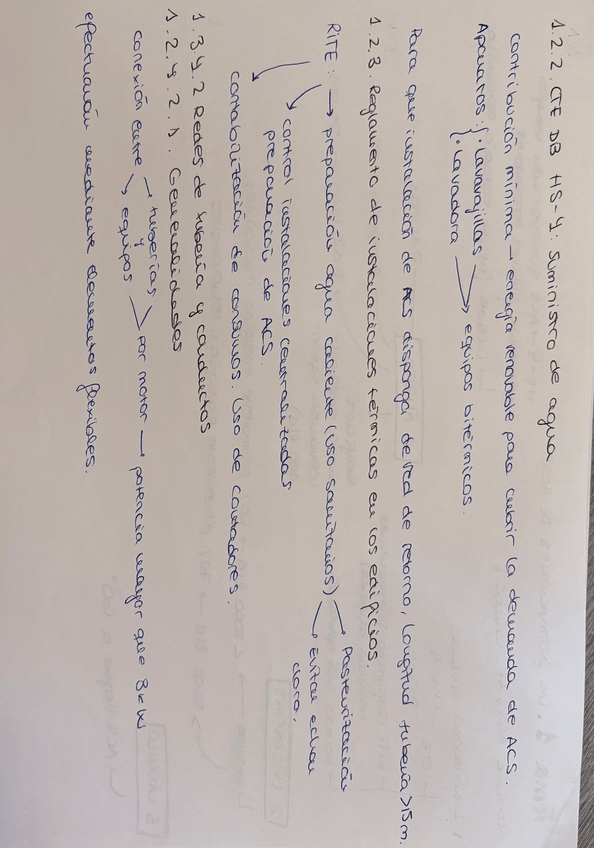 1.2.2. CTE DB HS-4: Suministro de agua
contribución mínima → energía renovable para cubrir la demanda de ACS.
Aparatos: { · Lavavajillas
· Lavadora → equipos bitérmicos.
Para que instalación de ACS disponga de red de retorno, longitud tubería >15m.
1.2.3. Reglamento de instalaciones térmicas en los edificios.
RITE: → preparación agua caliente (uso sanitarios) → Pasteurización
→ Evitar echar cloro.
→ control instalaciones centralizadas
preparación de ACS.
→ contabilización de consumos. Uso de contadores.
1.3.4.2 Redes de tubería y conductos
1.2.4.2.1. Generalidades
conexión entre → tuberías y → equipos > por motor → potencia mayor que 3kW
efectuarán mediante elementos flexibles.